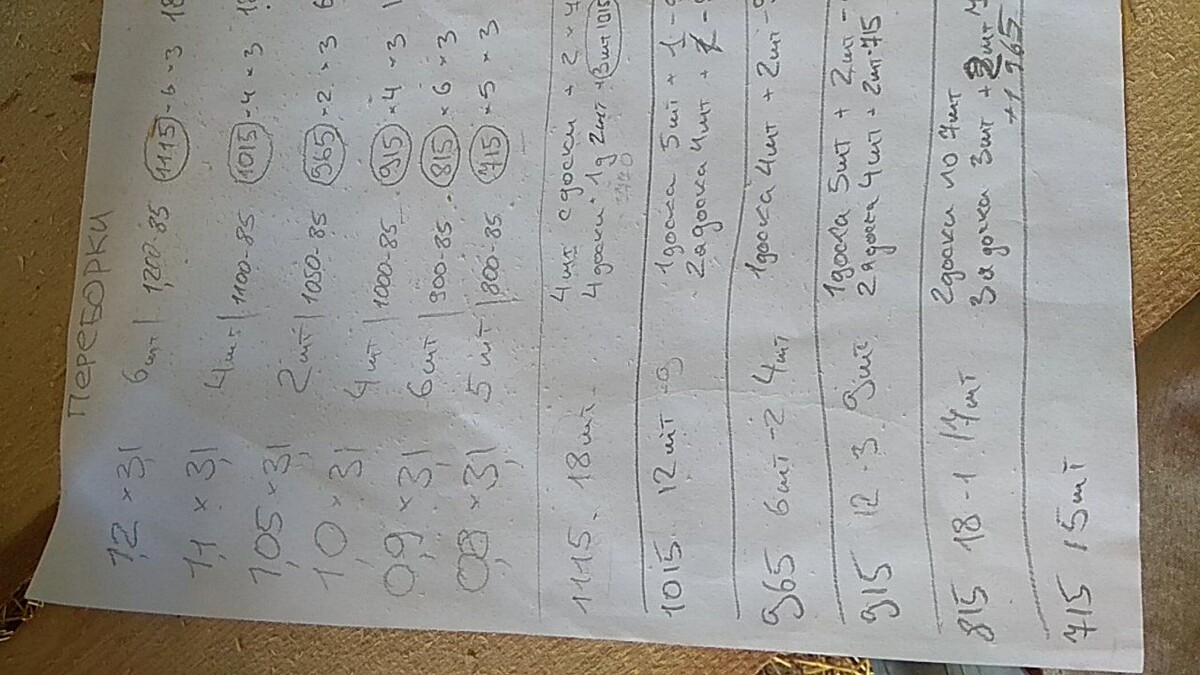 ПЕРЕБОРКИ
1,2 × 3,1 6шт | 1200-85 1115 - 6 × 3 18
1,1 × 3,1 4шт | 1100-85 1015 · 4 × 3
1,05 × 3,1 2шт | 1050-85 965 × 2 × 3 6
1,0 × 3,1 4шт | 1000-85 915 × 4 × 3 1
0,9 × 3,1 6шт | 900-85 815 × 6 × 3
0,8 × 3,1 5шт | 800-85 715 × 5 × 3
1115 - 18шт - 4шт с доски + 2 × 4
4 доски 1д 2шт + 3шт 1015
1015 12шт -9 1доска 5шт + 1 - 9
2 доска 4шт +
965 6шт -2 4шт 1доска 4шт + 2шт -9
915 12 - 3 9шт 1доска 5шт + 2шт -
2я доска 4шт + 2шт · 715
815 18 - 1 17шт 2доски по 7шт
3я доска 3шт + 2шт
+1 965
715 15шт